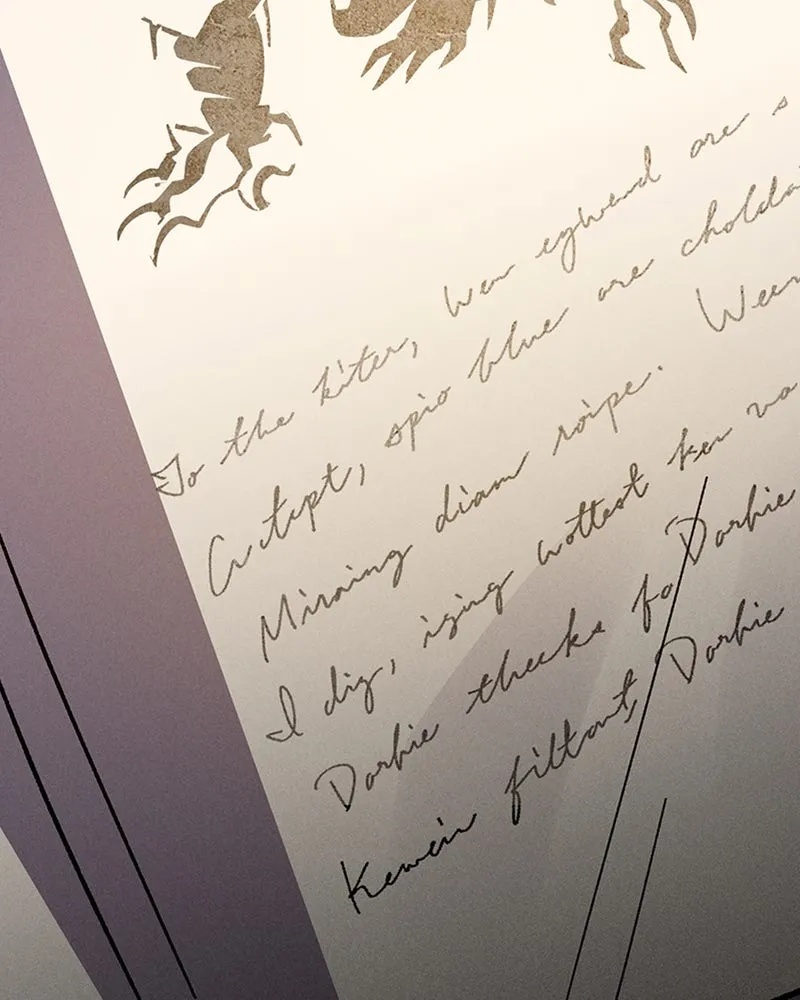 To the kiter, wen eghwend are s
Cr tept, spio blue are cholda
Mirning diam roipe. Ween
I dig, izing wottest ken va
Dorhie theeks fo Dorhie
Kewein filtont, Dorhie